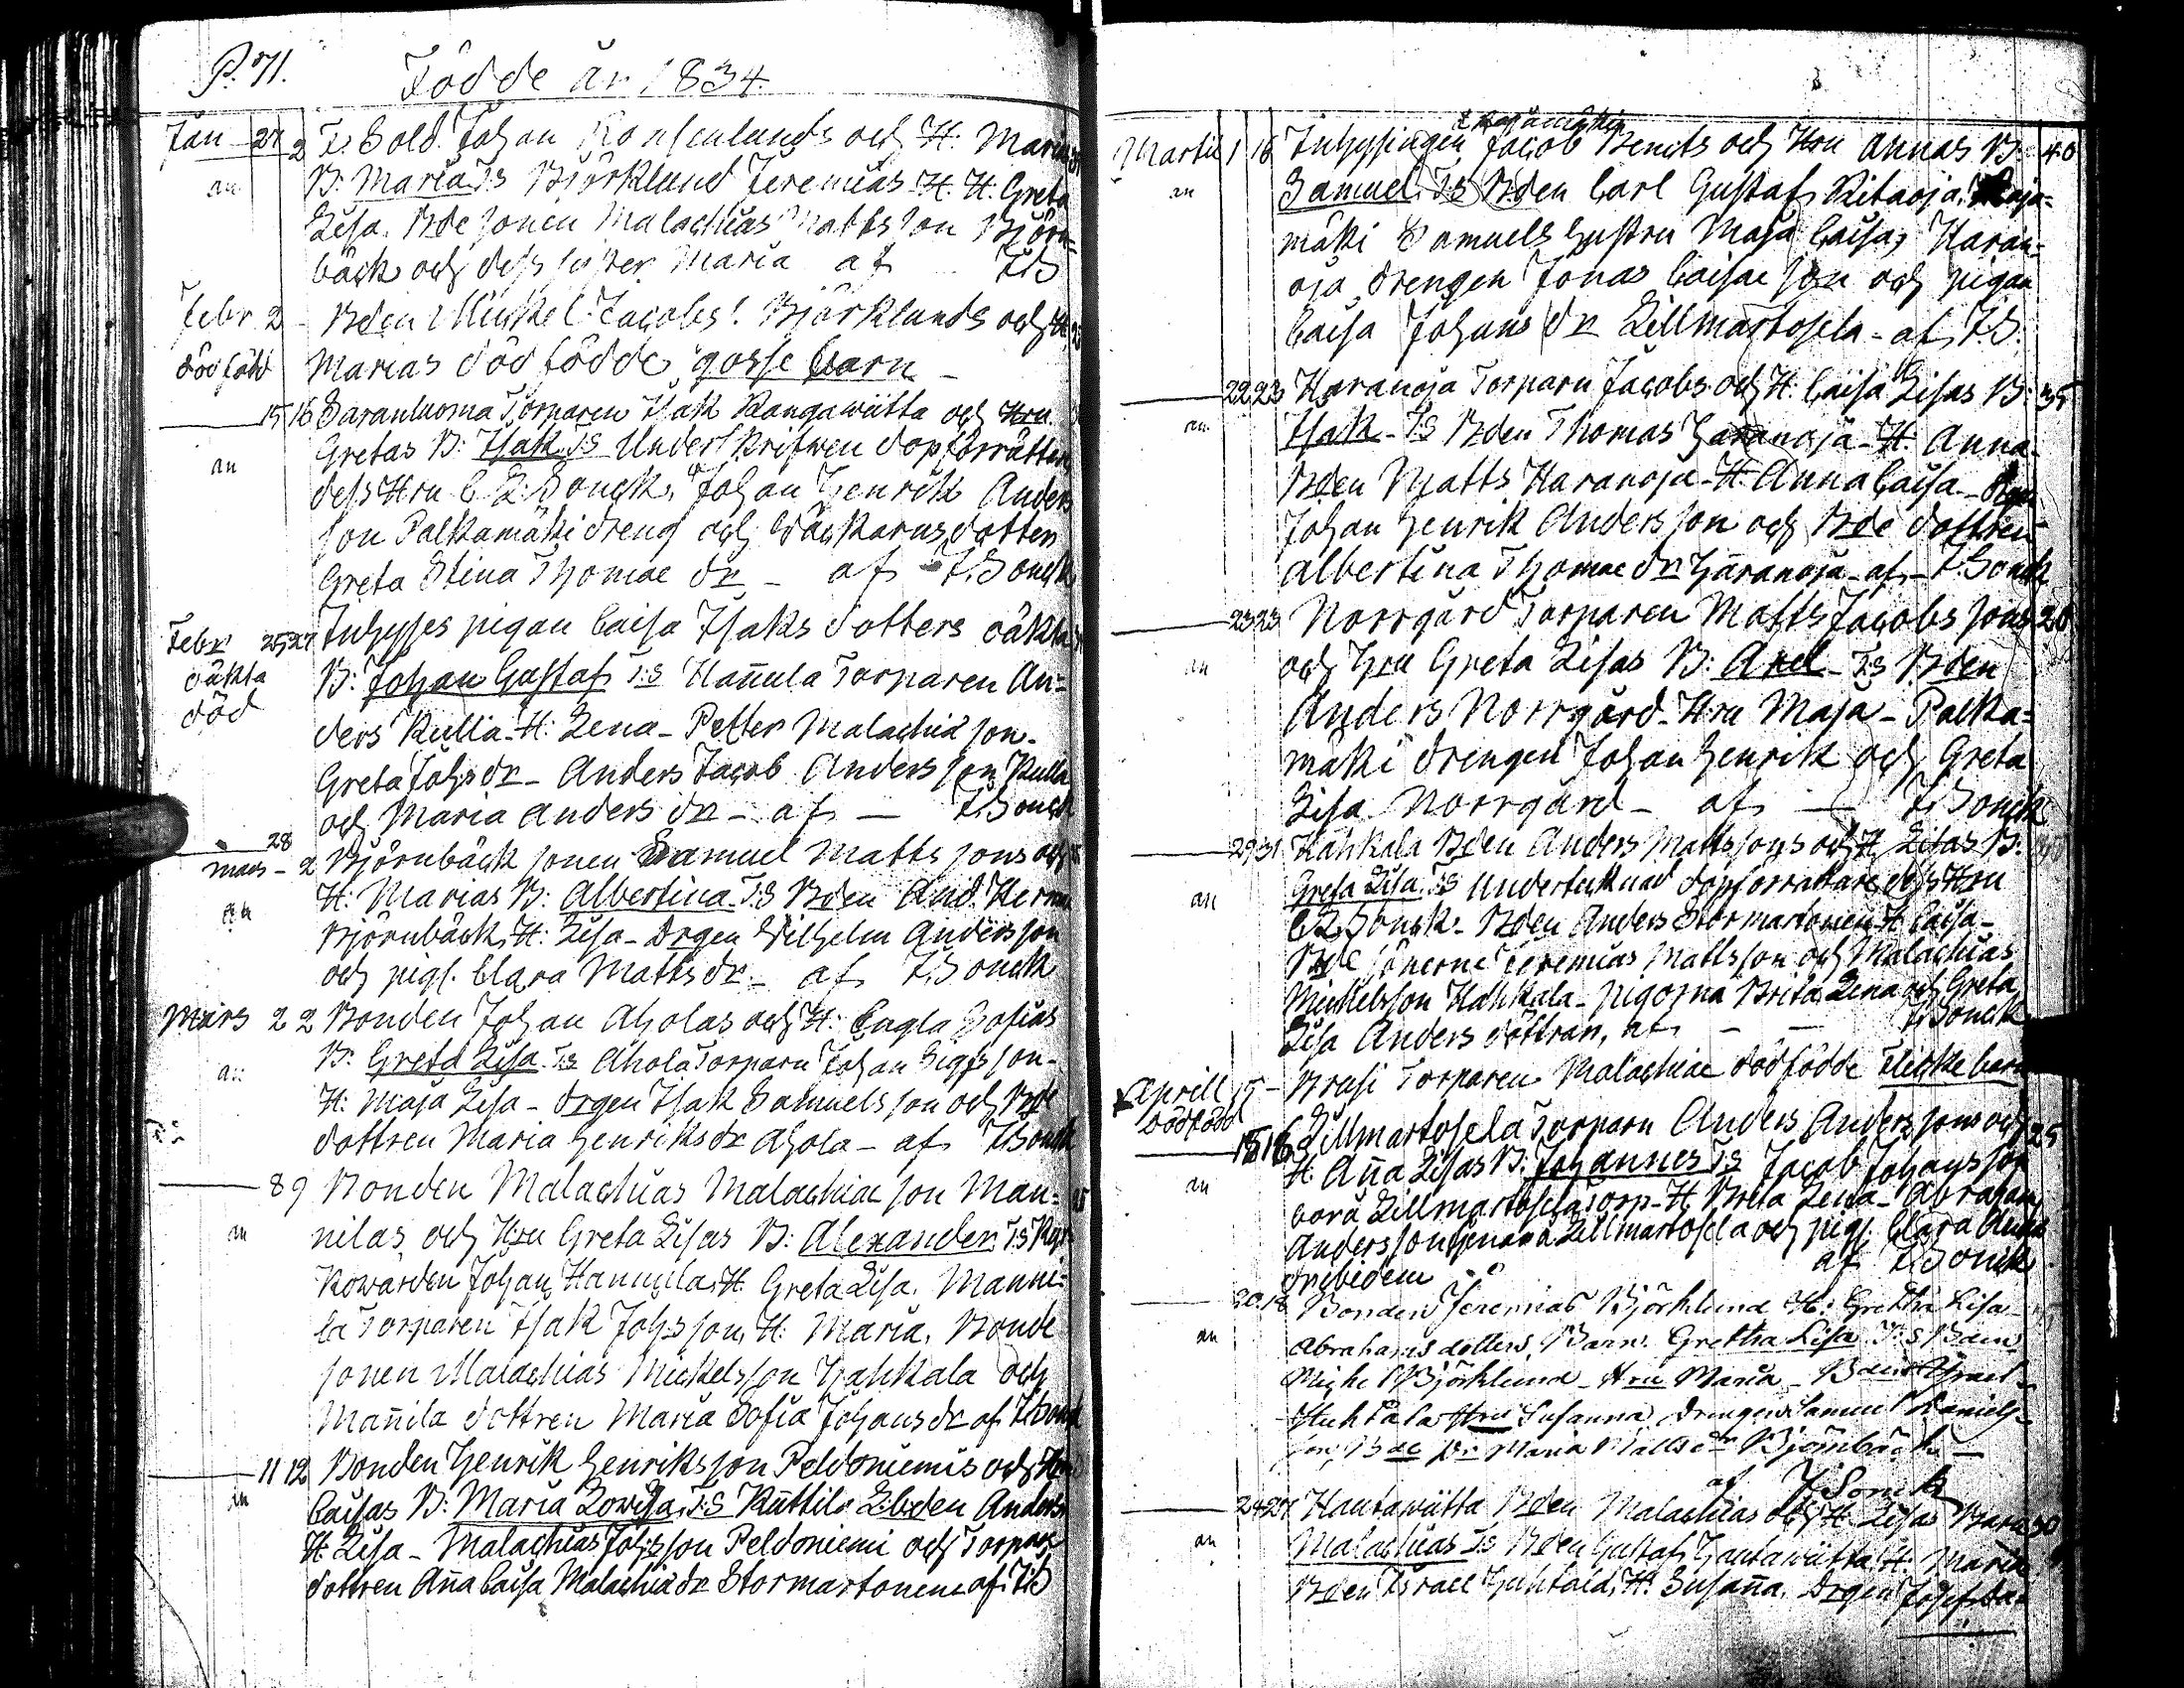 P. 71. Födde år 1834.
Jan 27 2 F. Sold. Johan Ronsenlunds och H. Maria
an B: Maria T:s Björklund Jeremias H. H. Greta
Lisa. Bde sonen Malachias Mattsson Björn-
bäck och dess syster Maria af I.S
Febr 2 - Bden Mickel Jacobs: Björklunds och H.
dödfödd Marias dödfödde gosse barn -
15 16 Saranluoma Torparen Isak Kangawiitta och Hru
an Gretas B: Isak T.S Underskrifwen dopförrättare
dess Hru C L Sonck, Johan Henrik Anders
son Palkamäki dreng och Wäckarns dotter
Greta Stina Thomae dr - af I. Sonck
Febr 25 27 Juhyses pigan Caisa Isaks dotters oäkta
oäkta B: Johan Gustaf T:s Hañula Torparen An-
död ders Kullia. H: Lena - Petter Malachiæ son -
Greta Johs dr - Anders Jacob Andersson Kullia
och Maria Anders dr - af - I. Sonck
28
mars - 2 Björnbäck sonen Samuel Mattssons och
an H: Marias B: Albertina T:S Bden And. Herm
Björnbäck, H: Lisa - Drgen Wilhelm Andersson
och pigs. Clara Matts dr - af I. Sonck
Mars 2 2 Bonden Johan Aholas och H: Cagla Sofias
an B: Greta Lisa T:s Ahola Torparn Johan Sigfs son -
H: Maja Lisa - Drgen Isak Samuelsson och Bde
dottren Maria Henriks dr Ahola - af I Sonck
8 9 Bonden Malachias Malachiæ son Man-
an nilas och Hru Greta Lisas B: Alexander T:s Kyr-
kowärden Johan Hannula, H. Greta Lisa. Manni-
la Torparen Isak Johs son, H: Maria. Bonde
sonen Malachias Mickelsson Hahkala och
Mañila dottren Maria Sofia Johans dr af I Sonck
11 12 Bonden Henrik Henriksson Peldoniemis och Hru
an Caisas B: Maria Lowisa, T:S Kuttila L:bden Anders
H. Lisa - Malachias Johs son Peldoniemi och Torpare
dottren Aña Caisa Malachiæ dr Stormartonen af I:S
Martii 1 16 Juhysingen Jacob Bencts och Hru Annas B: 40
an Samuel T:S Bden Carl Gustaf Ritaoja, Koja-
mäki Samuels hustru Maja Caisa, Haran-
oja drengen Jonas Caisae son och pigan
Caisa Johans dr Lillmartosela - af I.S.
22 23 Haranoja Torparn Jacobs och H: Caisa Lisas B: 35
an Isak - T:S Bden Thomas Haranoja - H: Anna -
Bden Matts Haranoja - H: Anna Caisa -
Johan Henrik Andersson och Bde dottren
Albertina Thomae dr Haranoja - af - I. Sonck
23 23 Norrgård Torparen Matts Jacobs sons 20
an och Hru Greta Lisas B: Axel - T:s Bden
Anders Norrgård - Hru Maja - Palka-
mäki drengen Johan Henrik och Greta
Lisa Norrgård - af - I. Sonck
29 31 Hahkala Bden Anders Mattssons och H Lisas B:
an Greta Lisa. T:S Undertecknad dopförrättare, dess Hru
C L Sonck - Bden Anders Stormartonen H Caisa -
Bde sönerne Jeremias Mattsson och Malachias
Mickelsson Hahkala - pigorna Brita Lena och Greta
Lisa Anders döttran, af - - I. Sonck
Aprill 15 - Brusi Torparen Malachiæ dödfödde Flicke barn
Dödfödd
15 16 Lillmartosela Torparn Anders Anderssons och 25
an H Aña Lisas B: Johannes T:s Jacob Johansson
Lillmartosela Torp - H Brita Lena - Abraham
Andersson Lillmartosela och pigs. Clara Anders
dr ibidem af I. Sonck
20 Bonden Jeremias Björklund H: Gretha Lisa
an Abrahams dotters, Barn. Gretha Lisa T:s Bden
Michel Björklund - Hru Maria - Bden Israel
Huhtala Hru Susanna, drengen Samuel Daniels-
son, Bde dr Maria Matts dr Björnbäck -
af I Sonck
24 27 Hautawiitta Bden Malachias och H. Lisas Barn 30
an Malachias T:s Bden Gustaf Hautawiitta H. Maria
Bden Israel Huhtala, H. Susaña. Drgen Josef Da-